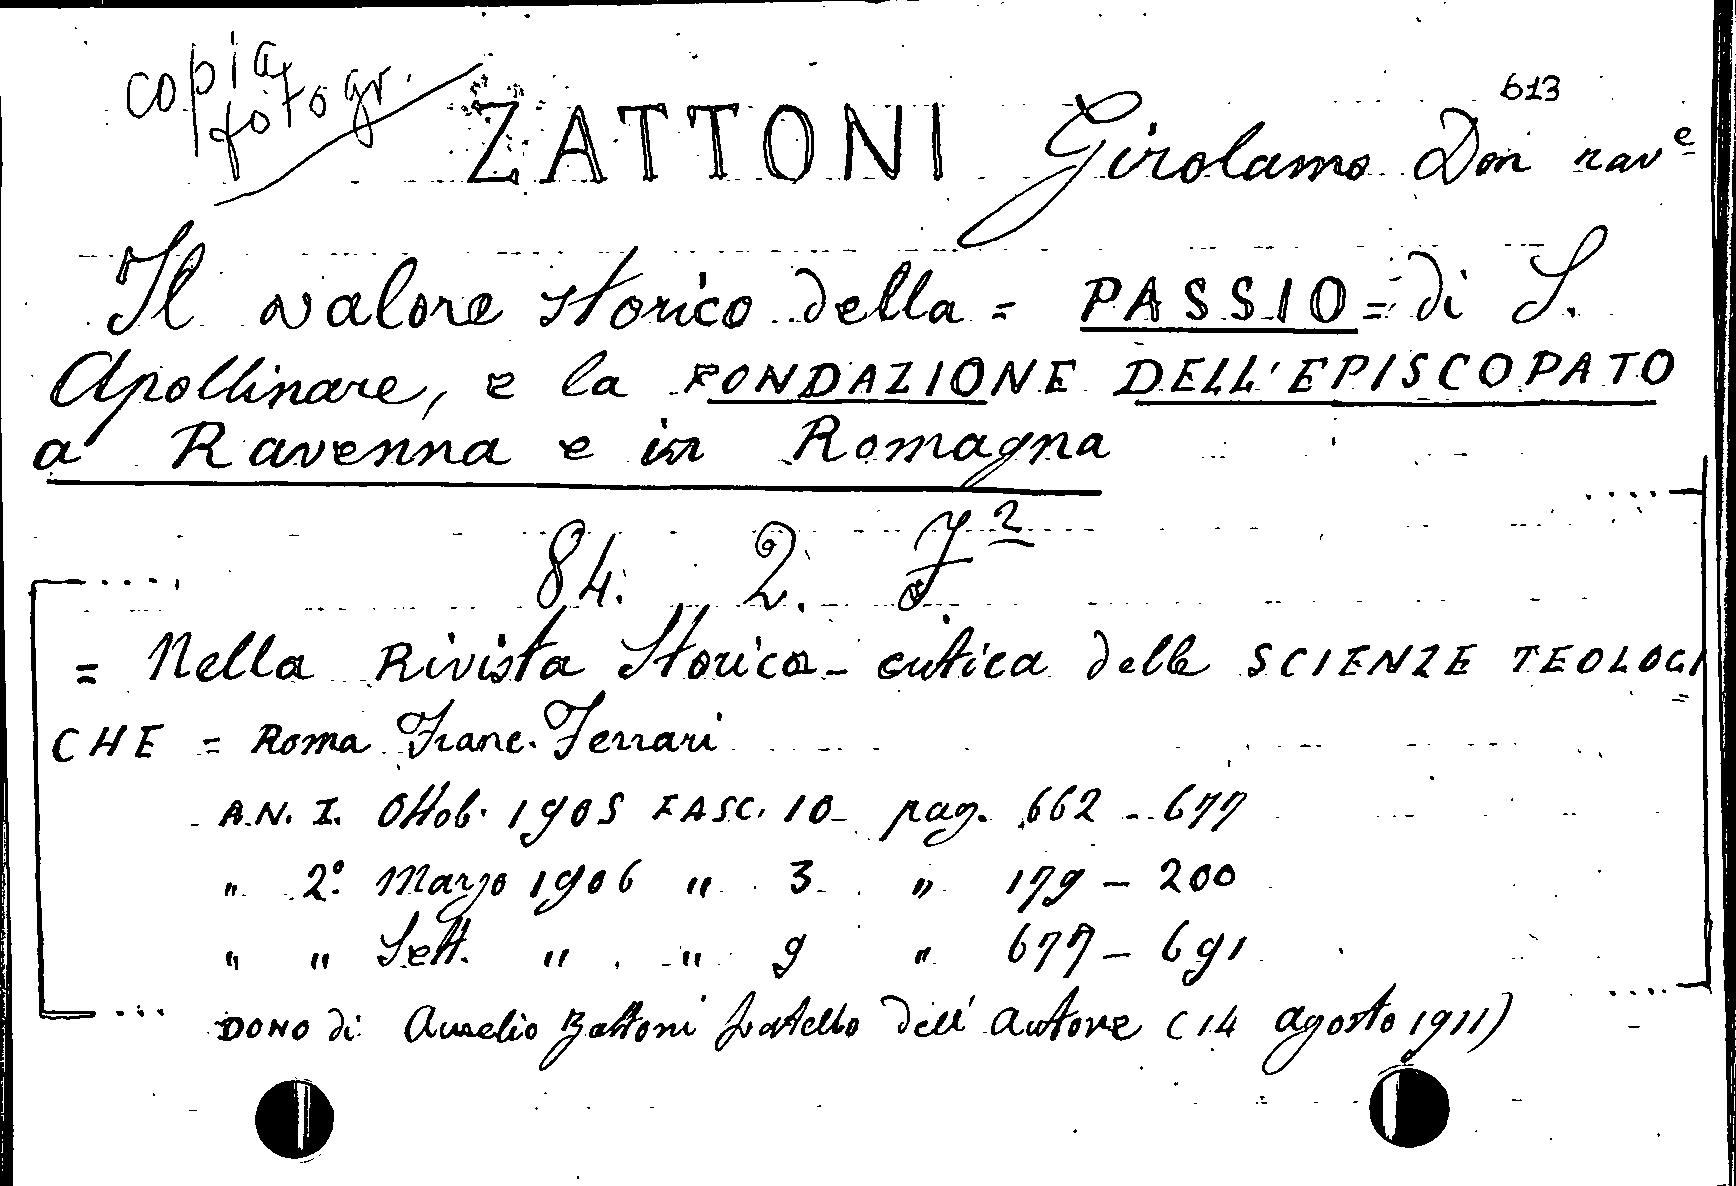 copia fotogr.
613
ZATTONI Girolamo Don rav e
Il valore storico della = PASSIO = di S.
Apollinare, e la FONDAZIONE DELL'EPISCOPATO
a Ravenna e in Romagna
84. 2. F 2
= Nella Rivista Storico-critica delle SCIENZE TEOLOGI=
CHE = Roma Franc. Ferrari
AN. I. Ottob. 1905 FASC. 10 pag. 662-677
" 2º. Marzo 1906 " 3 " 179-200
" " Sett. " " 9 " 677-691
DONO di Aurelio Zattoni fratello dell'autore (14 agosto 1911)